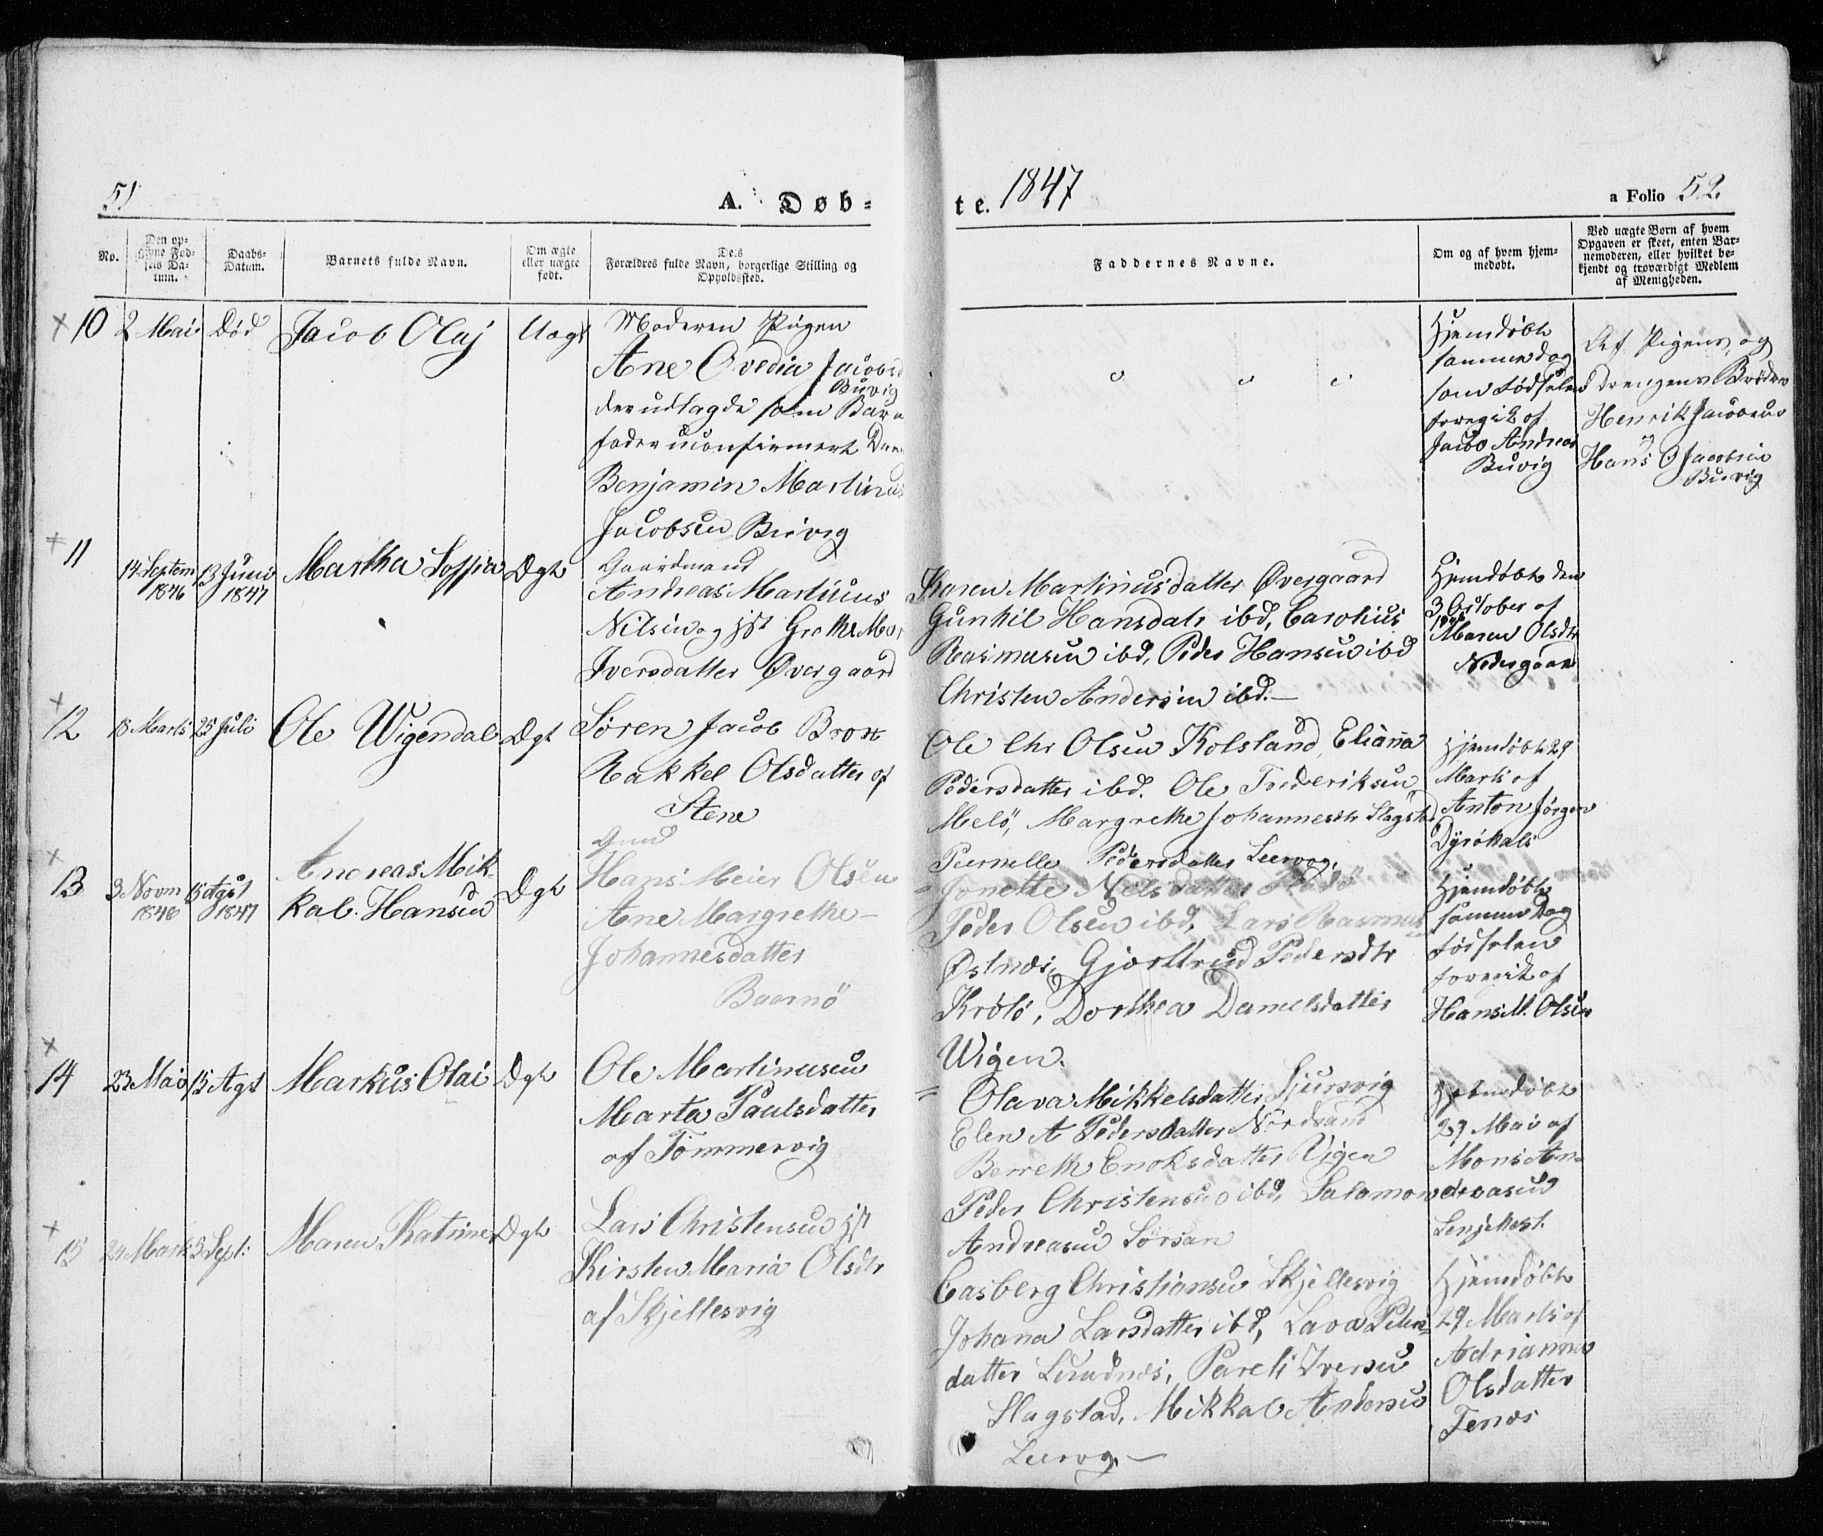 51
A. Døb-
te. 1847
a Folio 52
No.
Den op-
givne Fød-
sels Da-
tum.
Daabs-
Datum.
Barnets fulde Navn.
Om ægte
eller uægte
født.
De:s
Forældres fulde Navn, borgerlige Stilling og
Opholdssted.
Faddernes Navne.
Om og af hvem hjem-
medøbt.
Ved uægte Børn af hvem
Opgaven er skeet, enten Bar-
nemoderen, eller hvilket be-
kjendt og troværdigt Medlem
af Menigheden.
× 10
2 Mai
Død
Jacob Olaj
Uægt
Moderen Pigen
Ane Ovedia Jacobsd
Buvig
der udlagde som Barn
fader uconfirmert Dren
Benjamin Martinus
Jacobsen Buvig
" " "
Hjemdøbt
samme dag
som Fødselen
foregik af
Jacob Andreas
Buvig
Af Pigens og
Drengens Brødre
Henrik Jacobsen
og
Hans O Jacobsen
Buvig
× 11
14 Septem
1846
13 Juni
1847
Martha Soffia
Ægt
Gaardmand
Andreas Martinus
Nilsen og hst Grethe Mar
Iversdatter Øvergaard
Karen Martinusdatter Øvergaard
Gunhil Hansdatr ibd, Carolius
Rasmusen ibd, Peder Hansen ibd
Christen Andersen ibd. —
Hjemdøbt den
3 October af
1846
Maren Olsdtr
Nedergaard
× 12
18 Marts
25 Juli
Ole Wigendal
Ægt
Søren Jacob Brox
Rakkel Olsdatter af
Stene
Ole Chr Olsen Kolsland, Elianna
Pedersdatter ibd. Ole Frederiksen
Melö, Margrethe Johannesdtr Slagstad
Pernelle Pedersdatter Leervog,
Hjemdøbt 29
Marts af
Anton Jörgen
Dyrökals
× 13
3 Novm
1846
15 Agst
1847
Andreas Mik-
kal. Hansen
Ægt
Gmd
Hans Meier Olsen
Ane Margrethe —
Johannesdatter
Baarnö
= Jonette Nelsdatter Rödö
Peder Olsen ibd, Lars Rasmus
Østnæs, Gjørttrud Pedersdtr
Krölö, Dorthea Danielsdatter
Wigen.
Hjemdøbt
samme Dag
Fødselen
foregik af
Hans M. Olsen
× 14
23 Mai
15 Agst
Markus Olai
Ægt
Ole Martinusen
Marta Paulsdatter
af Tömmervig
= Olava Mikkelsdatter Sjursvig
Elen A Pedersdatter Nordsand
Bereth Enoksdatter Vigen
Peder Christensen ibd, Salamon
Andreasen Sörsan
Hjemdøbt
23 Mai af
Mons An-
dreasen
Senjehest.
× 15
24 Marts
5 Sept:
Maren Katrine
Ægt
Lars Christensen hst
Kirsten Maria Olsdtr
af Skjellesvig
Casberg Christiansen Skjellesvig
Johana Larsdatter ibd, Lava Peder-
datter Lundnes, Pareli Iversen
Slagstad, Mikkal Andersen
Leervog, —
Hjemdøbt
29 Marts af
Adrianna
Olsdatter
Fenæs